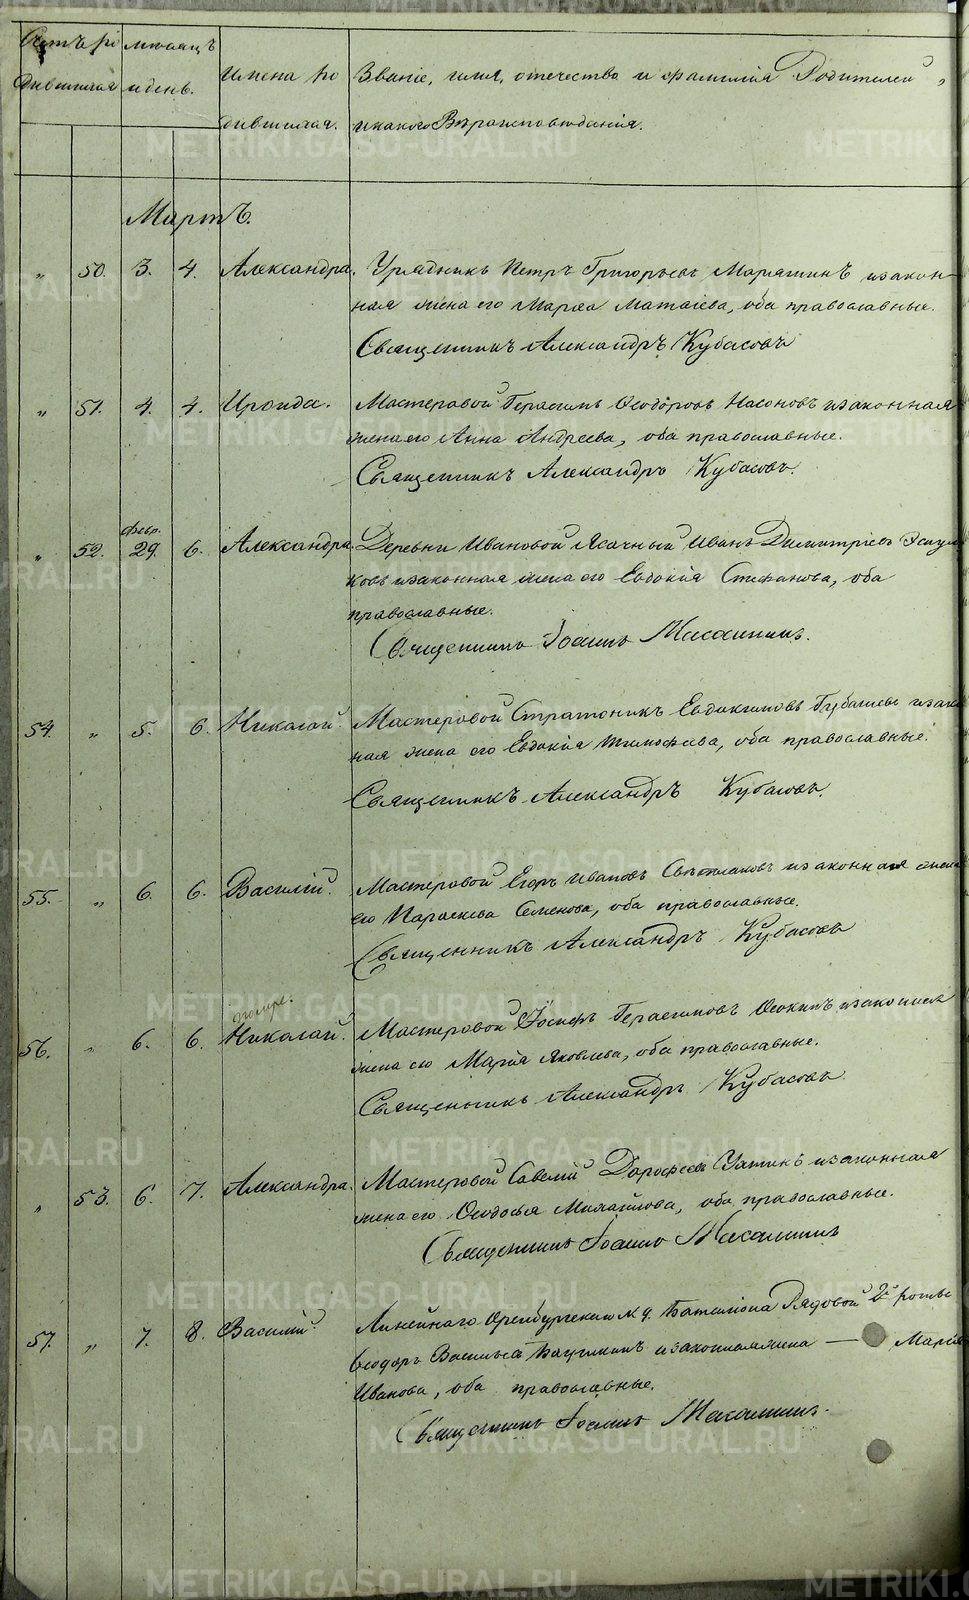 Счетъ ро мѣсяцъ
дившихся и день.
Имена ро Званіе, имя, отечество и фамилія Родителей,
дившихся. и какого Вѣроисповѣданія.
Мартъ.
„ 50. 3. 4. Александра. Урядникъ Петръ Григорьевъ и закон-
ная жена его Марѳа Матвіева, оба православные.
Священникъ Александръ Кубасовъ
„ 51. 4. 4. Ираида. Мастеровой Герасимъ Ѳеодоровъ Насоновъ и законная
жена его Анна Андреева, оба православные.
Священникъ Александръ Кубасовъ.
февр.
„ 52. 29. 6. Александра. Деревни Ивановой Ясачный Иванъ Димитріевъ
ковъ и законная жена его Евдокія Стефанова, оба
православные.
Священникъ Іоаннъ
54. „ 5. 6. Николай. Мастеровой Стратоникъ Евдокимовъ и закон
ная жена его Евдокія Тимофеева, оба православные.
Священникъ Александръ Кубасовъ.
55. „ 6. 6. Василій. Мастеровой Егоръ Ивановъ Свѣтлаковъ и законная жена
его Параскева Семенова, оба православные.
Священникъ Александръ Кубасовъ
помре.
56. „ 6. 6. Николай. Мастеровой Іосифъ Герасимовъ Осокинъ и законная
жена его Марія Яковлева, оба православные.
Священникъ Александръ Кубасовъ
„ 53. 6. 7. Александра. Мастеровой Савелій Дорофеевъ и законная
жена его Ѳеодосья Михайлова, оба православные.
Священникъ Іоаннъ
57. „ 7. 8. Василій. Линейнаго Оренбургскаго № 9. Баталіона Рядовой 2й роты
Ѳеодоръ Васильевъ и законная жена — Марія
Иванова, оба православные.
Священникъ Іоаннъ
METRIKI.GASO-URAL.RU